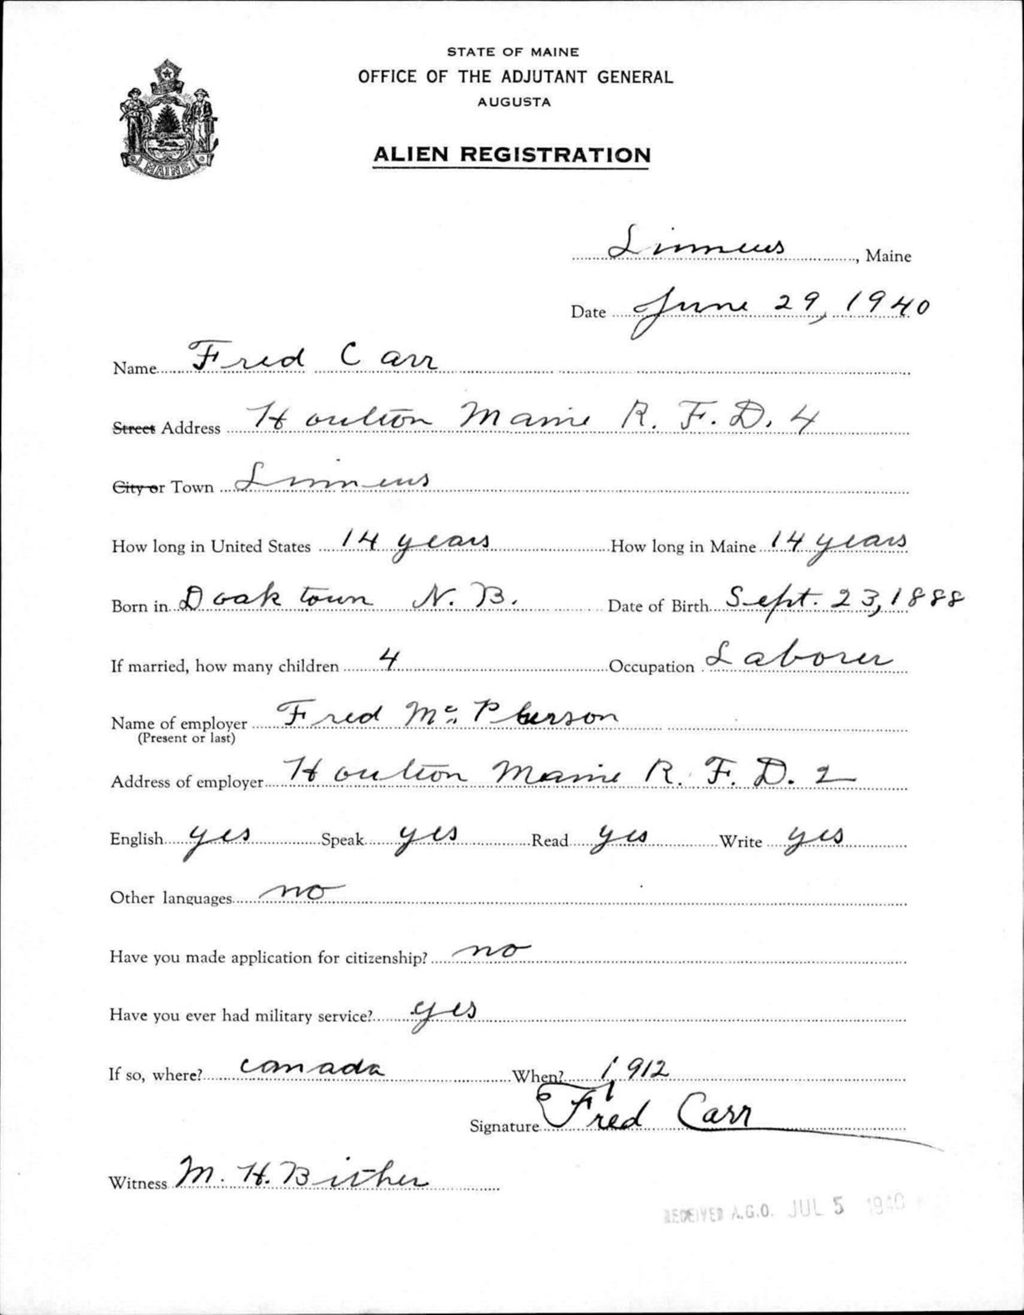 STATE OF MAINE
OFFICE OF THE ADJUTANT GENERAL
AUGUSTA
ALIEN REGISTRATION
MAINE
Linneus, Maine
Date June 29, 1940
Name Fred Carr
Street Address Houlton Maine R. F. D. 4
City or Town Linneus
How long in United States 14 years How long in Maine 14 years
Born in Doaktown N. B. Date of Birth Sept. 23, 1888
If married, how many children 4 Occupation Laborer
Name of employer Fred Mc Pherson
(Present or last)
Address of employer Houlton Maine R. F. D. 2
English yes Speak yes Read yes Write yes
Other languages no
Have you made application for citizenship? no
Have you ever had military service? yes
If so, where? Canada When? 1912
Signature Fred Carr
Witness M. H. Bither
RECEIVED A.G.O. JUL 5 1940